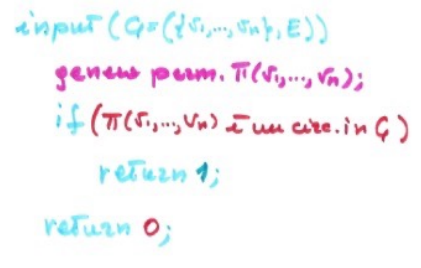 input (G=({v₁,...,vₙ}, E))
genera perm. π(v₁,...,vₙ);
if (π(v₁,...,vₙ) è un circ. in G)
return 1;
return 0;